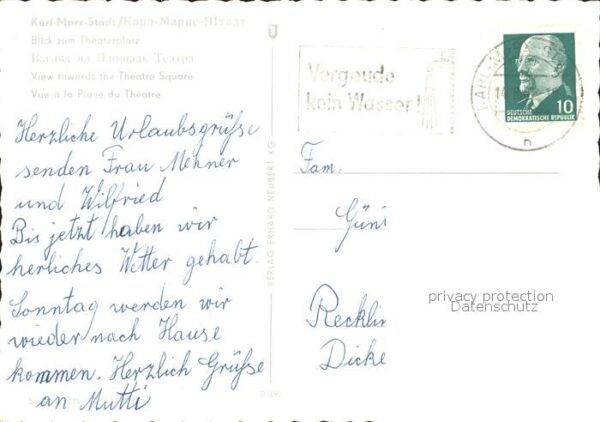 Karl-Marx-Stadt/Карл-Маркс-Штадт
Blick zum Theaterplatz
Взгляд на Площадь Театра
View towards the Theatre Square
Vue à la Place du Théatre
Herzliche Urlaubsgrüße
senden Frau Mehner
und Wilfried
Bis jetzt haben wir
herliches Wetter gehabt.
Sonntag werden wir
wieder nach Hause
kommen. Herzlich Grüße
an Mutti
VERLAG ERHARD NEUBERT KG
Vergeude
kein Wasser!
KARL-M
h
10
DEUTSCHE
DEMOKRATISCHE REPUBLIK
Fam.
Günt
Recklin
Dicke
privacy protection
Datenschutz